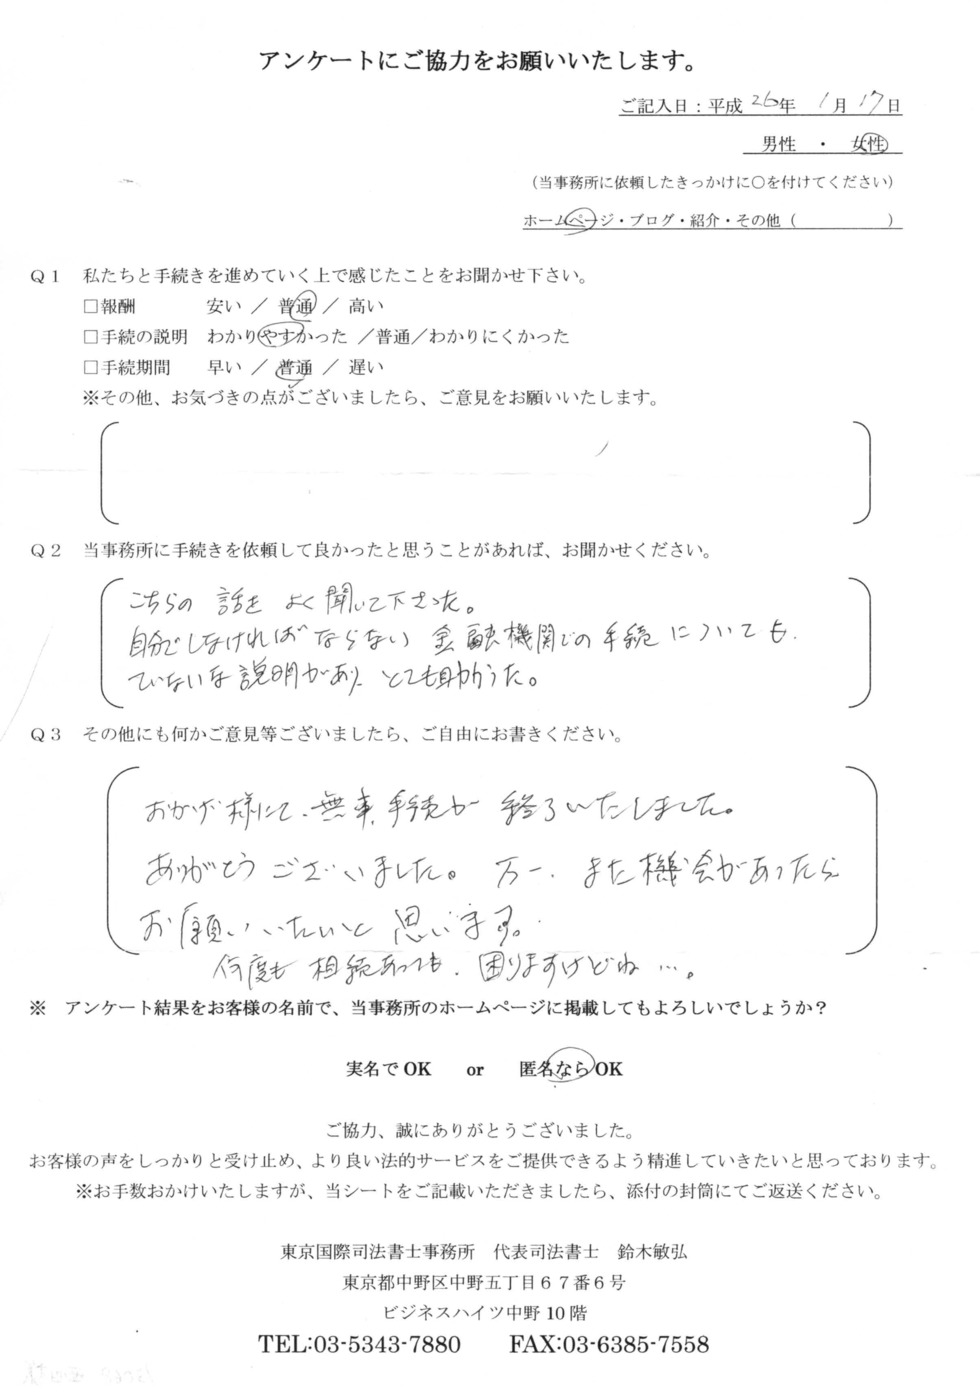 アンケートにご協力をお願いいたします。
ご記入日：平成 26年 1月 17日
男性 ・ 女性
（当事務所に依頼したきっかけに○を付けてください）
ホームページ・ブログ・紹介・その他（　　　　　）
Q１　私たちと手続きを進めていく上で感じたことをお聞かせ下さい。
□報酬　　安い ／ 普通 ／ 高い
□手続の説明　わかりやすかった ／普通／わかりにくかった
□手続期間　　早い ／ 普通 ／ 遅い
※その他、お気づきの点がございましたら、ご意見をお願いいたします。
Q２　当事務所に手続きを依頼して良かったと思うことがあれば、お聞かせください。
こちらの話をよく聞いて下さった。
自分でしなければならない金融機関での手続についても、
ていねいな説明があり、とても助かりました。
Q３　その他にも何かご意見等ございましたら、ご自由にお書きください。
おかげ様にて、無事、手続が終了いたしました。
ありがとうございました。万一、また機会があったら
お願いいたしたいと思います。
何度も相続あっても、困りますけどね…。
※　アンケート結果をお客様の名前で、当事務所のホームページに掲載してもよろしいでしょうか？
実名でOK　　or　　匿名ならOK
ご協力、誠にありがとうございました。
お客様の声をしっかりと受け止め、より良い法的サービスをご提供できるよう精進していきたいと思っております。
※お手数おかけいたしますが、当シートをご記載いただきましたら、添付の封筒にてご返送ください。
東京国際司法書士事務所　代表司法書士　鈴木敏弘
東京都中野区中野五丁目６７番６号
ビジネスハイツ中野 10 階
TEL:03-5343-7880　　FAX:03-6385-7558